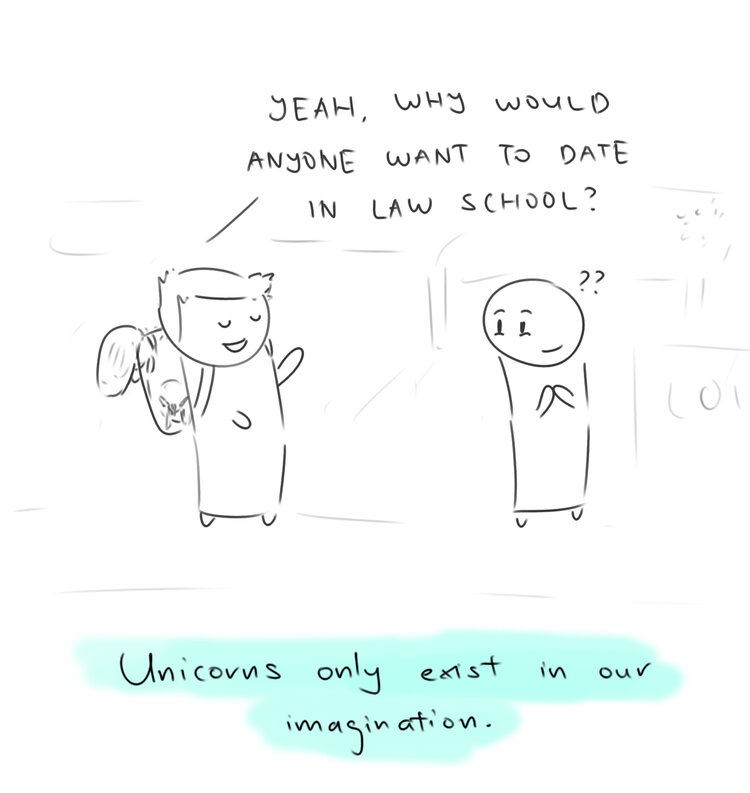 YEAH, WHY WOULD
ANYONE WANT TO DATE
IN LAW SCHOOL?
??
Unicorns only exist in our
imagination.